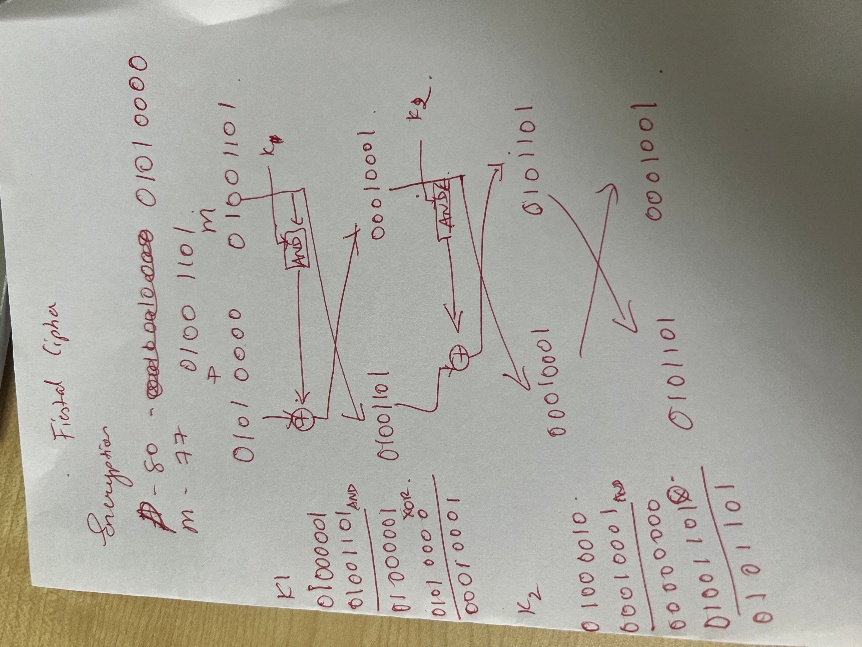 Fiestal Cipher
Encryption
P - 80 - 01010000
m - 77 0100 1101
P m
01010000 01001101
K1
AND
+
01001101 00010001
K2
AND
+
00010001 0101101
0101101 0001001
K1
01000001
01001101 AND
01000001
01010000 XOR
00010001
K2
01000010
00010001 AND
00000000
01001101
0101101